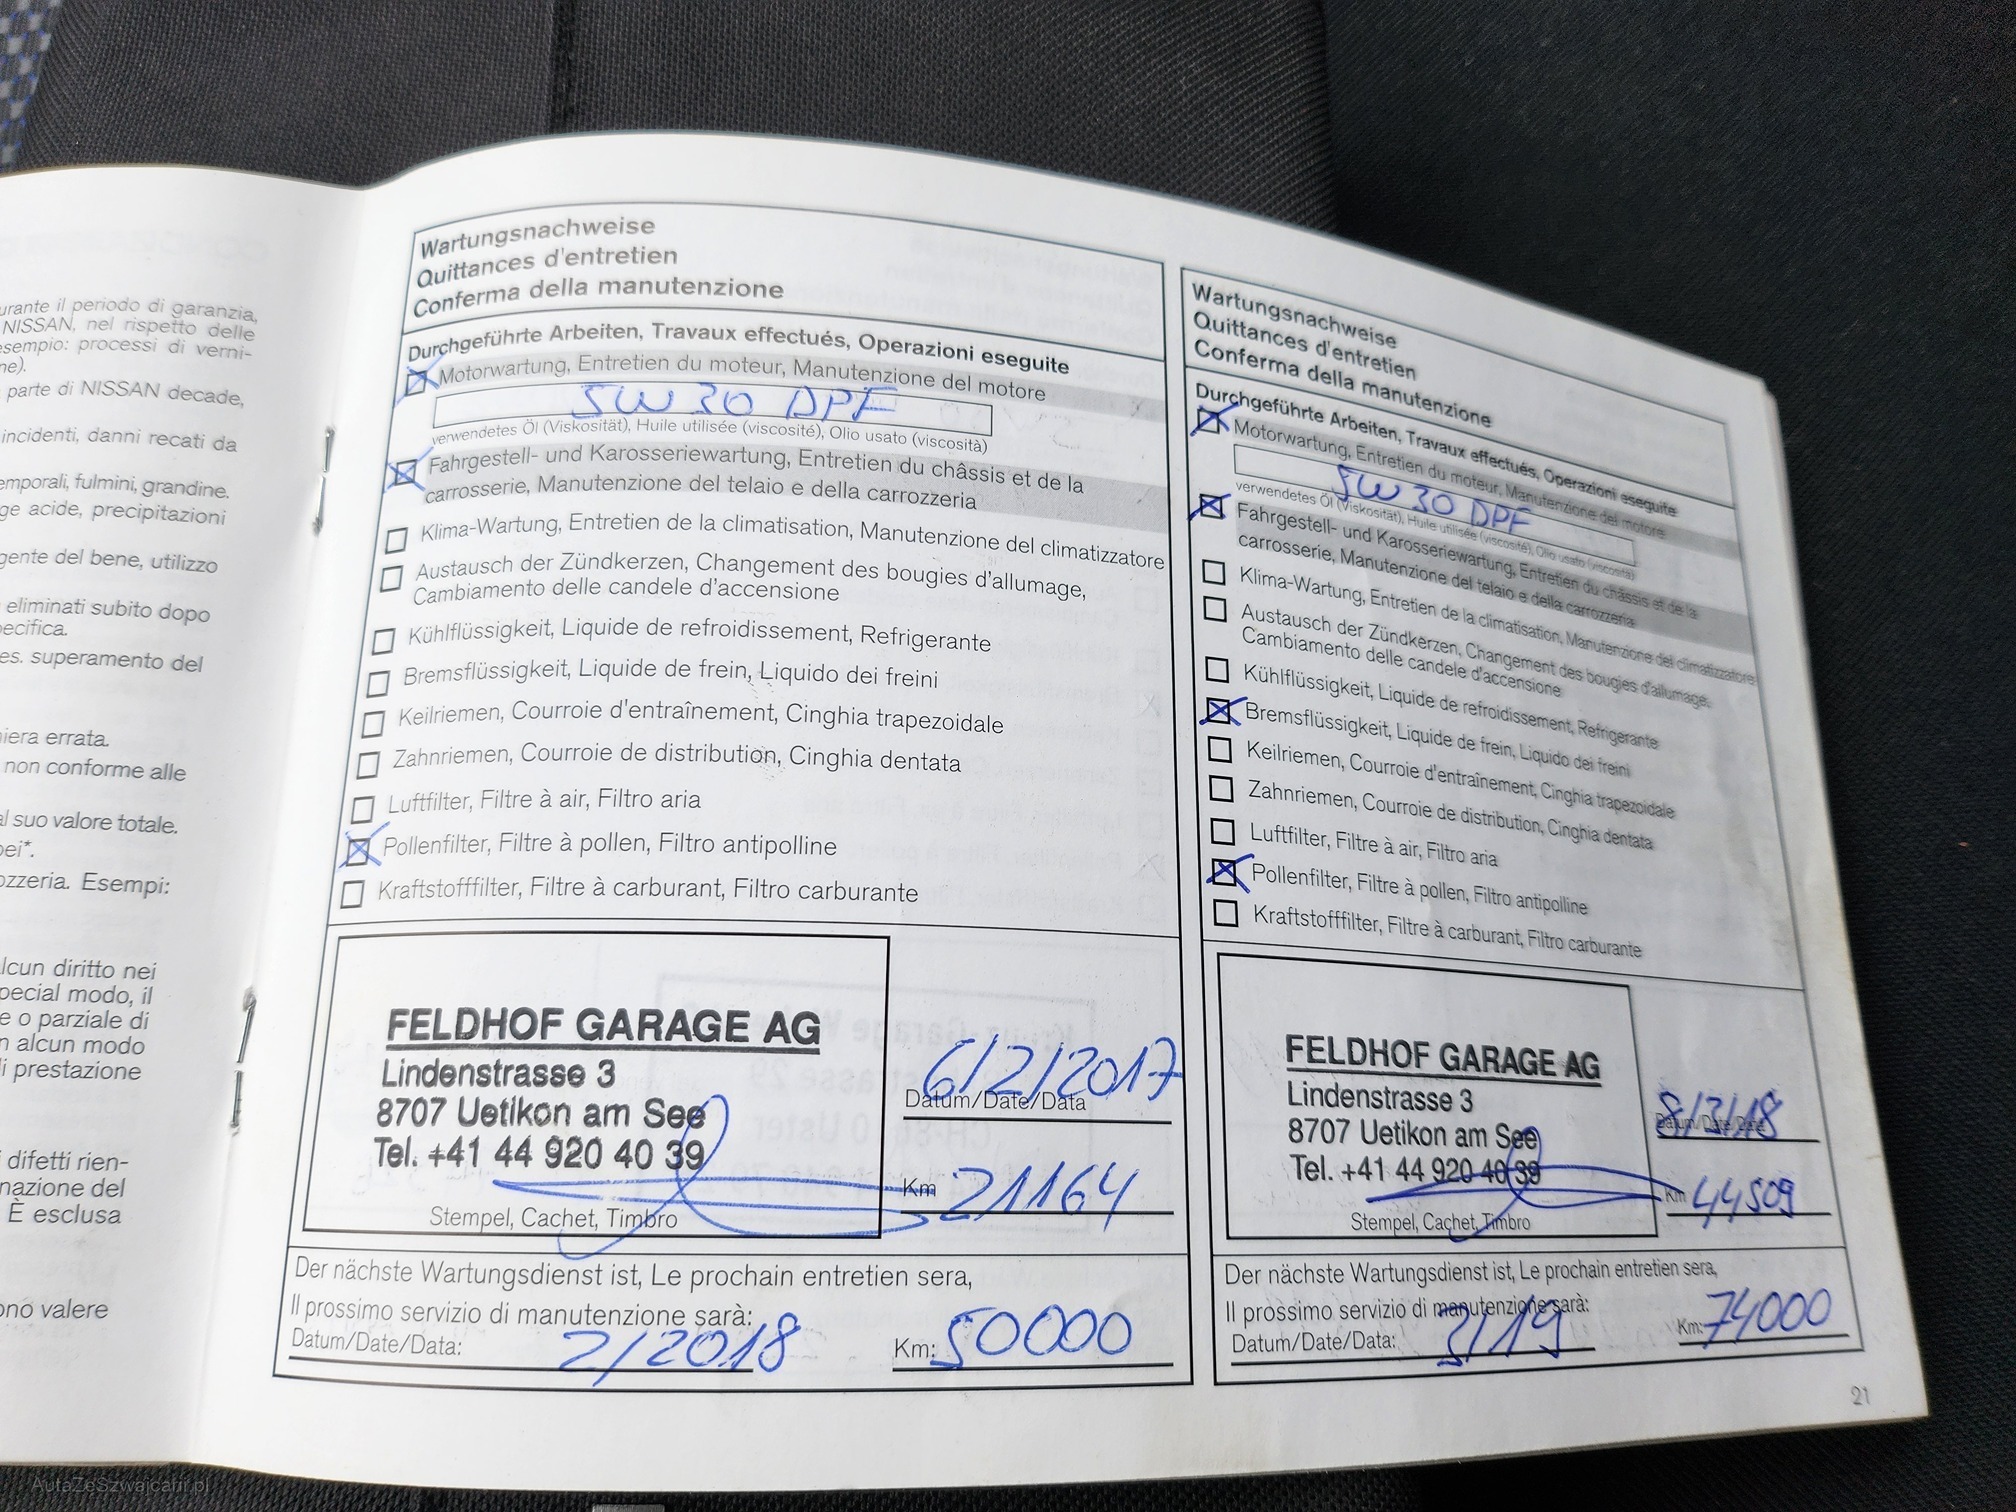 urante il periodo di garanzia,
NISSAN, nel rispetto delle
esempio: processi di verni-
ne).
parte di NISSAN decade,
incidenti, danni recati da
emporali, fulmini, grandine.
ge acide, precipitazioni
gente del bene, utilizzo
eliminati subito dopo
pecifica.
es. superamento del
niera errata.
non conforme alle
al suo valore totale.
pei*.
ozzeria. Esempi:
lcun diritto nei
pecial modo, il
e o parziale di
n alcun modo
li prestazione
difetti rien-
nazione del
È esclusa
ono valere
Wartungsnachweise
Quittances d'entretien
Conferma della manutenzione
Durchgeführte Arbeiten, Travaux effectués, Operazioni eseguite
Motorwartung, Entretien du moteur, Manutenzione del motore
5W30 DPF
verwendetes Öl (Viskosität), Huile utilisée (viscosité), Olio usato (viscosità)
Fahrgestell- und Karosseriewartung, Entretien du châssis et de la
carrosserie, Manutenzione del telaio e della carrozzeria
Klima-Wartung, Entretien de la climatisation, Manutenzione del climatizzatore
Austausch der Zündkerzen, Changement des bougies d'allumage,
Cambiamento delle candele d'accensione
Kühlflüssigkeit, Liquide de refroidissement, Refrigerante
Bremsflüssigkeit, Liquide de frein, Liquido dei freini
Keilriemen, Courroie d'entraînement, Cinghia trapezoidale
Zahnriemen, Courroie de distribution, Cinghia dentata
Luftfilter, Filtre à air, Filtro aria
Pollenfilter, Filtre à pollen, Filtro antipolline
Kraftstofffilter, Filtre à carburant, Filtro carburante
FELDHOF GARAGE AG
Lindenstrasse 3
8707 Uetikon am See
Tel. +41 44 920 40 39
Stempel, Cachet, Timbro
6/2/2017
Datum/Date/Data
Km 21164
Der nächste Wartungsdienst ist, Le prochain entretien sera,
Il prossimo servizio di manutenzione sarà:
Datum/Date/Data: 2/2018 Km: 50000
Wartungsnachweise
Quittances d'entretien
Conferma della manutenzione
Durchgeführte Arbeiten, Travaux effectués, Operazioni eseguite
Motorwartung, Entretien du moteur, Manutenzione del motore
5W30 DPF
verwendetes Öl (Viskosität), Huile utilisée (viscosité), Olio usato (viscosità)
Fahrgestell- und Karosseriewartung, Entretien du châssis et de la
carrosserie, Manutenzione del telaio e della carrozzeria
Klima-Wartung, Entretien de la climatisation, Manutenzione del climatizzatore
Austausch der Zündkerzen, Changement des bougies d'allumage,
Cambiamento delle candele d'accensione
Kühlflüssigkeit, Liquide de refroidissement, Refrigerante
Bremsflüssigkeit, Liquide de frein, Liquido dei freini
Keilriemen, Courroie d'entraînement, Cinghia trapezoidale
Zahnriemen, Courroie de distribution, Cinghia dentata
Luftfilter, Filtre à air, Filtro aria
Pollenfilter, Filtre à pollen, Filtro antipolline
Kraftstofffilter, Filtre à carburant, Filtro carburante
FELDHOF GARAGE AG
Lindenstrasse 3
8707 Uetikon am See
Tel. +41 44 920 40 39
Stempel, Cachet, Timbro
8/3/18
Datum/Date/Data
Km 44509
Der nächste Wartungsdienst ist, Le prochain entretien sera,
Il prossimo servizio di manutenzione sarà:
Datum/Date/Data: 3/19 Km: 74000
21
AutaZeSzwajcarii.pl